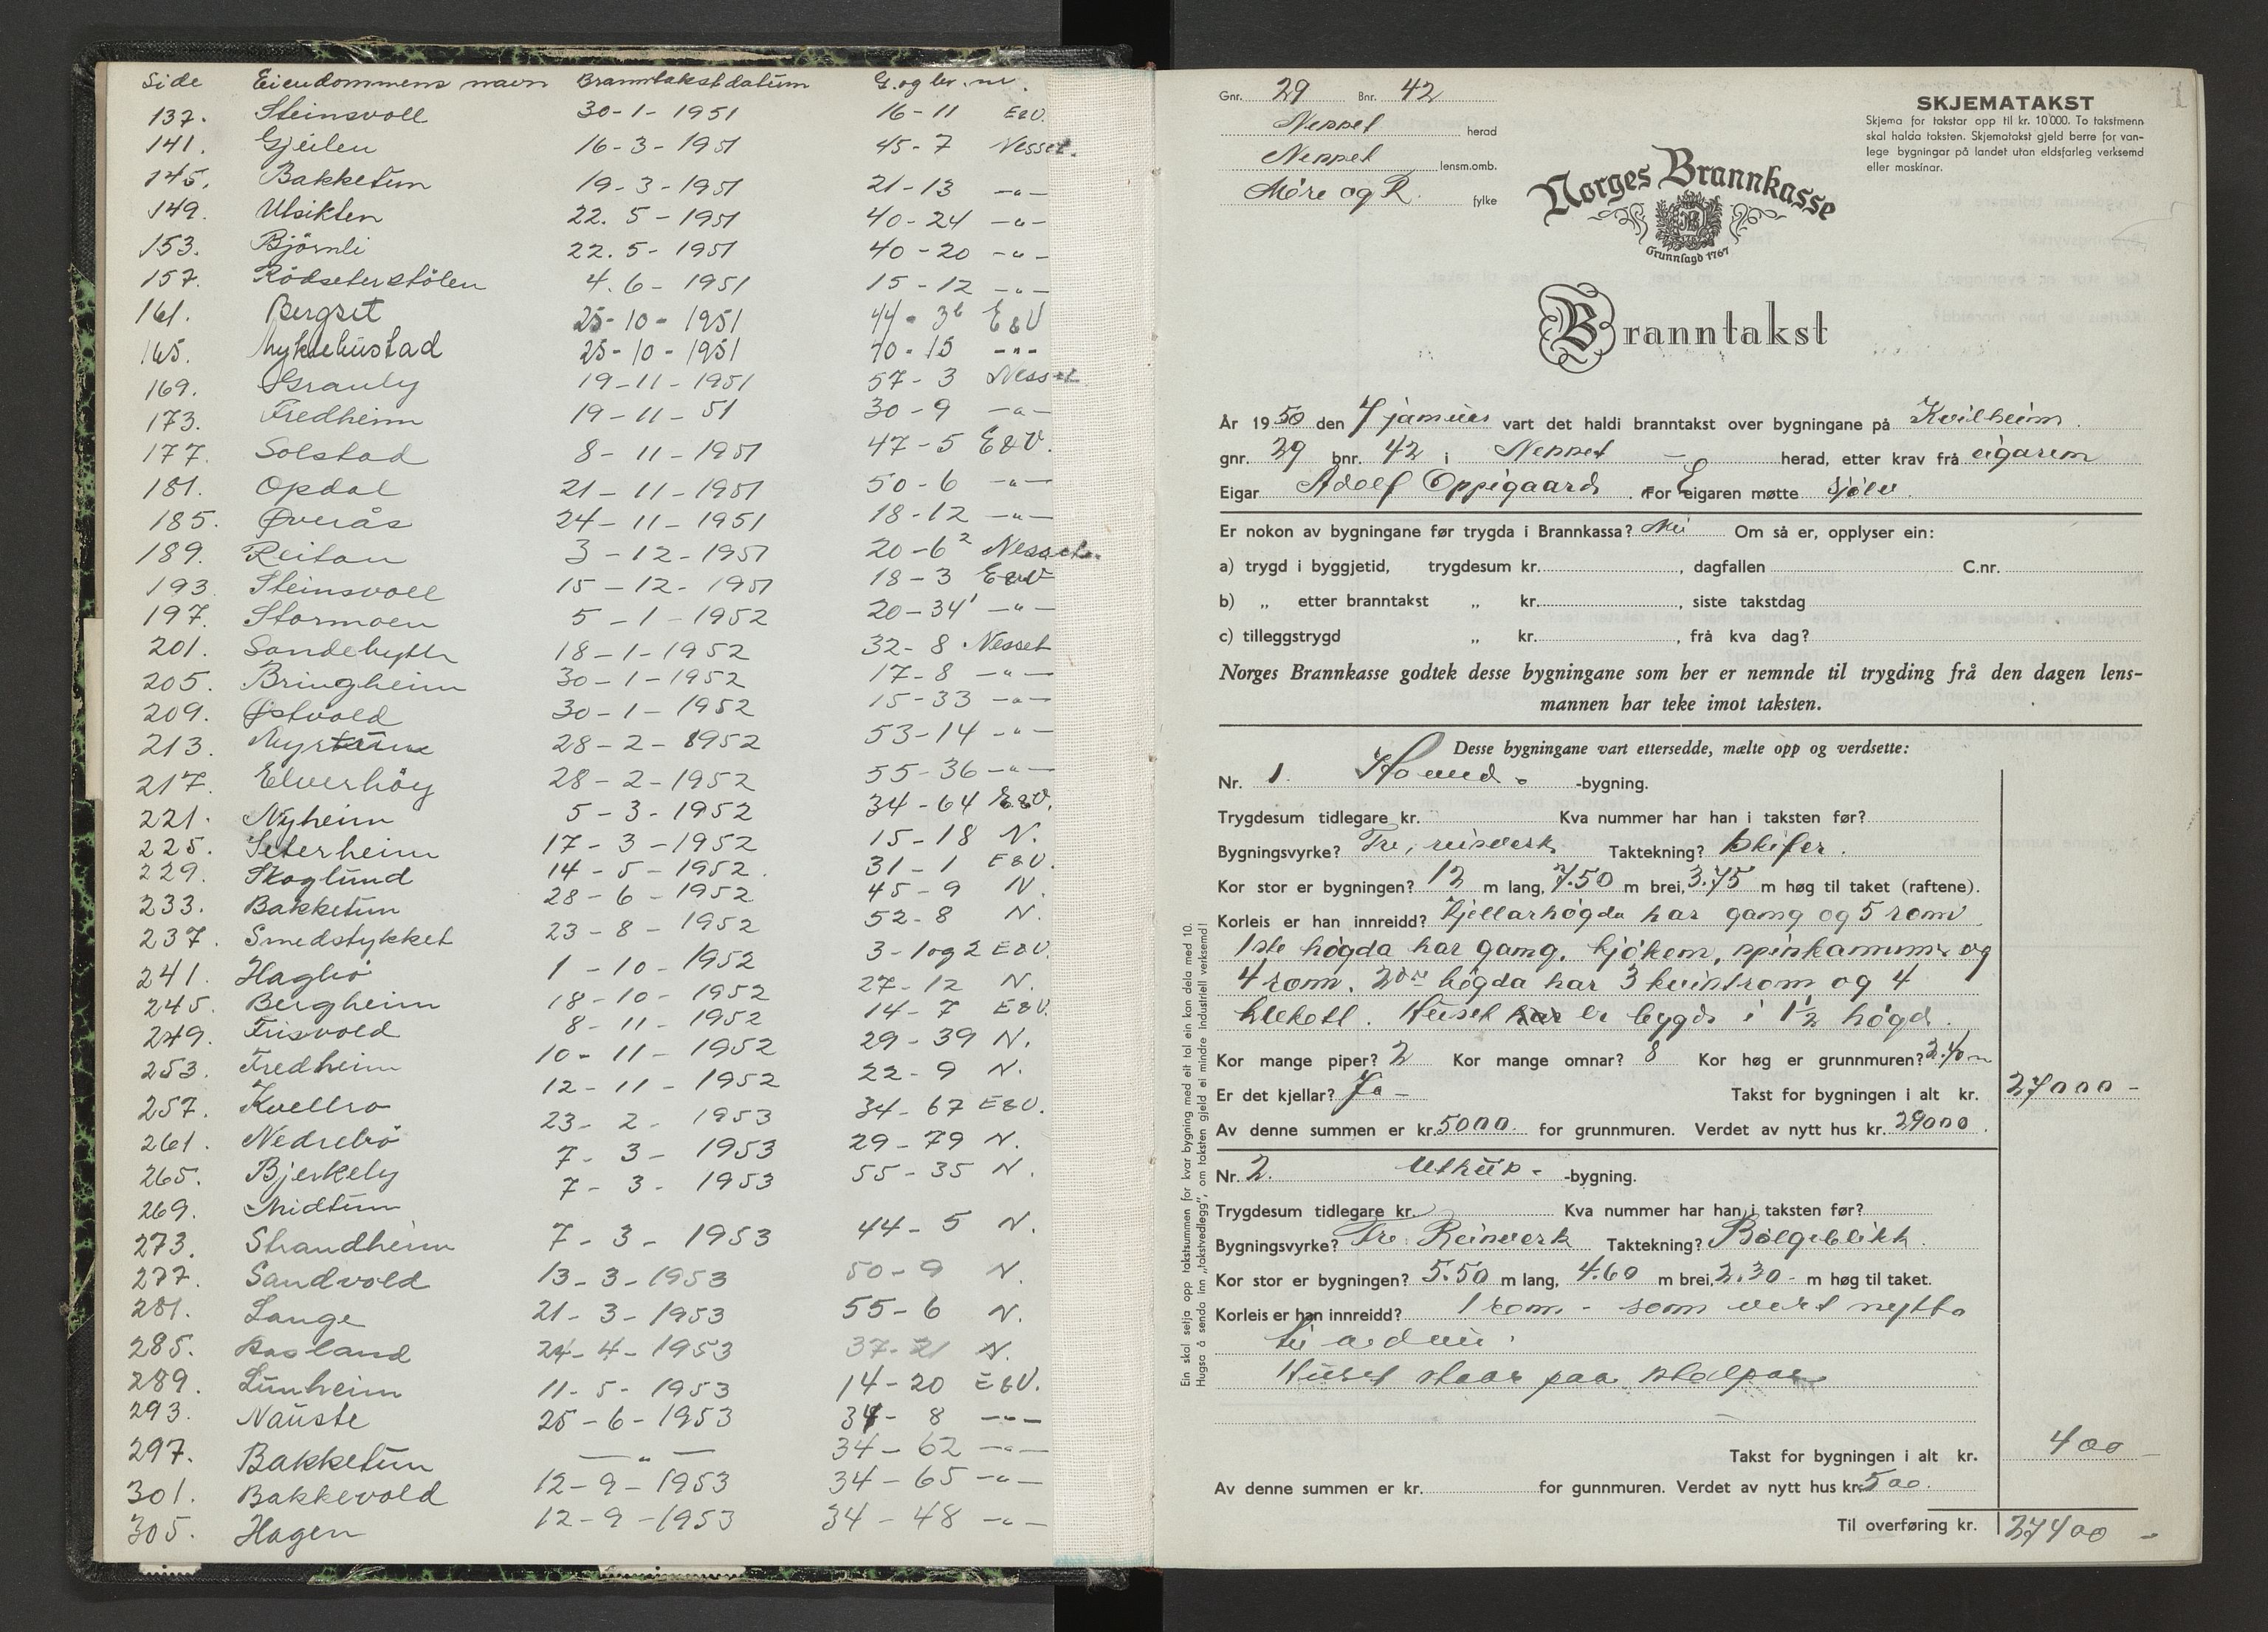 Side Eiendommens navn Branntakstdatum G. og br. nr.
137. Steinsvoll 30-1-1951 16-11 E&V.
141. Gjeilen 16-3-1951 45-7 Nesset.
145. Bakketun 19-3-1951 21-13 -"-
149. Utsikten 22.5-1951 40-24 -"-
153. Björnli 22.5-1951 40-20 -"-
157. Rödseterstölen 4.6-1951 15-12 -"-
161. Bergset 25-10-1951 44-36 E&V
165. Myklebustad 25-10-1951 70-15 -"-
169. Granly 19-11-1951 57-3 Nesset
173. Fredheim 19-11-51 30-9 -"-
177. Solstad 8-11-1951 47-5 E&V.
181. Opdal 21-11-1951 50-6 -"-
185. Øverås 24-11-1951 18-12 -"-
189. Reitan 3-12-1951 20-6² Nesset.
193. Steinsvoll 15-12-1951 18-3 E&V
197. Stormoen 5-1-1952 20-34' -"-
201. Sandehytta 18-1-1952 32-8 Nesset
205. Bringheim 30-1-1952 17-8 -"-
209. Østvold 30-1-1952 15-33 -"-
213. Myrtun 28-2-1952 53-14 -"-
217. Elverhöy 28-2-1952 55-36 -"-
221. Nyheim 5-3-1952 34-64 E&V.
225. Seterheim 17-3-1952 15-18 N.
229. Skoglund 14-5-1952. 31-1 E&V.
233. Bakketun 28-6-1952 45-9 N.
237. Smedstykket 23-8-1952 52-8 N.
241. Hagbö 1-10-1952 3-1og2 E&V.
245. Bergheim 18-10-1952 27-12 N.
249. Frisvold 8-11-1952 14-7 E&V.
253. Fredheim 10-11-1952 29-39 N.
257. Kvellro 12-11-1952 22-9 N.
261. Nedrebö 23-2-1953 34-67 E&V.
265. Bjerkely 7-3-1953 29-79 N.
269. Midtun 7-3-1953 55-35 N.
273. Strandheim 7-3-1953 44-5 N.
277. Sandvold 13-3-1953 50-9 N.
281. Lange 21-3-1953 55-6 N.
285. Aasland 24-4-1953 37-21 N.
289. Lunheim 11-5-1953 14-20 E&V.
293. Nauste 25-6-1953 34-8 -"-
297. Bakketun -"- 34-62 -"-
301. Bakkevold 12-9-1953 34-65 -"-
305. Hagen 12-9-1953 34-48 -"-
1
Gnr. 29 Bnr. 42
Nesset herad
Nesset lensm.omb.
Møre og R. fylke
SKJEMATAKST
Skjema for takstar opp til kr. 10 000. To takstmenn
skal halda taksten. Skjematakst gjeld berre for van-
lege bygningar på landet utan eldsfarleg verksemd
eller maskinar.
Norges Brannkasse
Grunnlagd 1767
Branntakst
År 1950 den 7 januar vart det haldi branntakst over bygningane på Kvilheim.
gnr. 29 bnr. 42 i Nesset - herad, etter krav frå eigaren
Eigar Adolf Oppigaard. For eigaren møtte Sjølv.
Er nokon av bygningane før trygda i Brannkassa? Nei Om så er, opplyser ein:
a) trygd i byggjetid, trygdesum kr. , dagfallen C.nr.
b) „ etter branntakst „ kr. , siste takstdag
c) tilleggstrygd „ kr. , frå kva dag?
Norges Brannkasse godtek desse bygningane som her er nemnde til trygding frå den dagen lens-
mannen har teke imot taksten.
Desse bygningane vart ettersedde, mælte opp og verdsette:
Nr. 1. Hovud- -bygning.
Trygdesum tidlegare kr. Kva nummer har han i taksten før?
Bygningsvyrke? Tre, reisverk Taktekning? Skifer.
Kor stor er bygningen? 12 m lang, 7.50 m brei, 3.75 m høg til taket (raftene).
Korleis er han innreidd? Kjellarhøgda har gang og 5 rom
1ste høgda har gang, kjøken, spiskammer og
4 rom. 2dre høgda har 3 kvistrom og 4
klekott. Huset har er bygd i 1½ høgd.
Kor mange piper? 2 Kor mange omnar? 8 Kor høg er grunnmuren? 2.40 m
Er det kjellar? Ja - Takst for bygningen i alt kr. 27000 -
Av denne summen er kr. 5000 for grunnmuren. Verdet av nytt hus kr. 29000.
Nr. 2. Uthus- -bygning.
Trygdesum tidlegare kr. Kva nummer har han i taksten før?
Bygningsvyrke? Tre. Reisverk Taktekning? Bølgeblikk.
Kor stor er bygningen? 5.50 m lang, 4.60 m brei, 2.30 - m høg til taket.
Korleis er han innreidd? 1 rom - som vert nytta
til
Huset staar paa stolpar
Takst for bygningen i alt kr. 400 -
Av denne summen er kr. for gunnmuren. Verdet av nytt hus kr. 500.
Til overføring kr. 27400 -
Ein skal setja opp takstsummen for kvar bygning med eit tal ein kan dela med 10.
Hugsa å senda inn „takstvedlegg", om taksten gjeld ei mindre industriell verksemd!